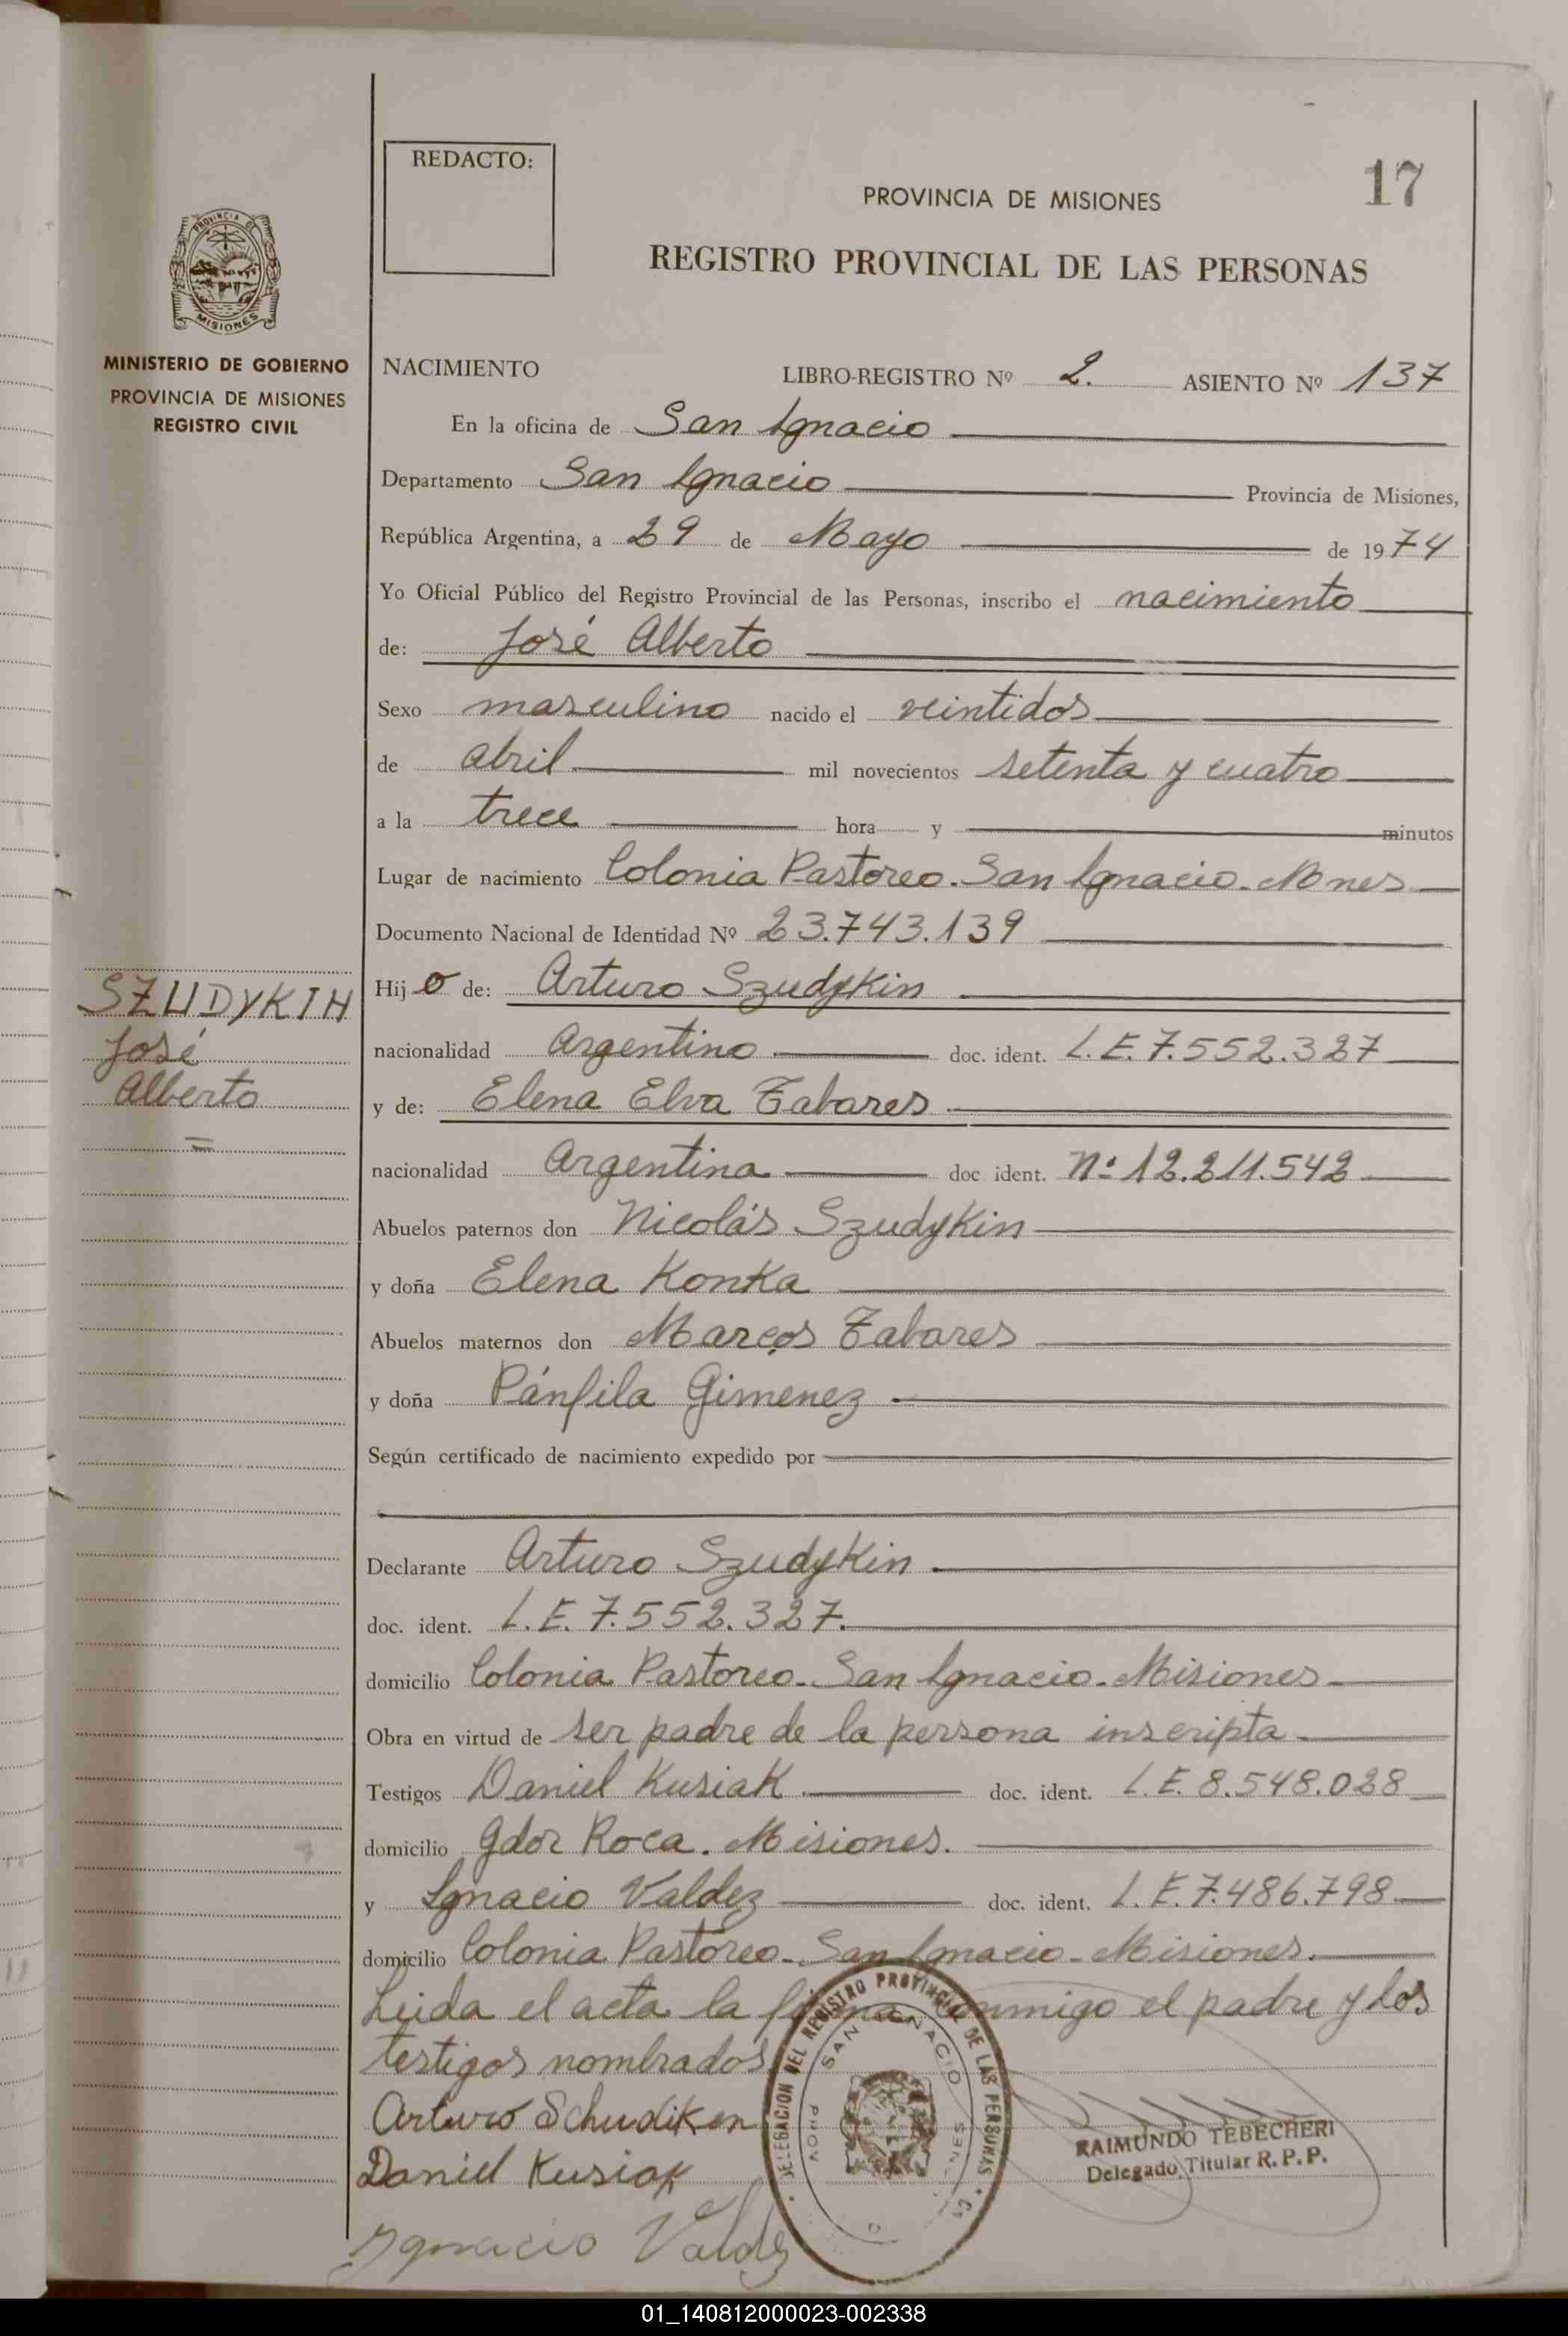 REDACTO:
17
PROVINCIA DE MISIONES
REGISTRO PROVINCIAL DE LAS PERSONAS
PROVINCIA DE
MISIONES
MINISTERIO DE GOBIERNO
PROVINCIA DE MISIONES
REGISTRO CIVIL
NACIMIENTO LIBRO-REGISTRO Nº 2. ASIENTO Nº 137
En la oficina de San Ignacio
Departamento San Ignacio Provincia de Misiones,
República Argentina, a 29 de Mayo de 1974
Yo Oficial Público del Registro Provincial de las Personas, inscribo el nacimiento
de: José Alberto
Sexo masculino nacido el veintidos
de abril mil novecientos setenta y cuatro
a la trece hora y minutos
Lugar de nacimiento Colonia Pastoreo. San Ignacio. Mnes
Documento Nacional de Identidad Nº 23.743.139
SZUDYKIN
José
Alberto
Hijo de: Arturo Szudykin
nacionalidad Argentino doc. ident. L.E. 7.552.327
y de: Elena Elva Tabares
nacionalidad Argentina doc ident. Nº 12.211.542
Abuelos paternos don Nicolás Szudykin
y doña Elena Konka
Abuelos maternos don Marcos Tabares
y doña Pánfila Gimenez
Según certificado de nacimiento expedido por
Declarante Arturo Szudykin
doc. ident. L.E. 7.552.327.
domicilio Colonia Pastoreo. San Ignacio. Misiones
Obra en virtud de ser padre de la persona inscripta
Testigos Daniel Kusiak doc. ident. L.E. 8.548.028
domicilio Gdor Roca. Misiones.
y Ignacio Valdez doc. ident. L.E. 7.486.798
domicilio Colonia Pastoreo. San Ignacio. Misiones.
Leida el acta la firma conmigo el padre y los
testigos nombrados
Arturo Schudiken
Daniel Kusiak
Ignacio Valdez
DELEGACION DEL REGISTRO PROVINCIAL DE LAS PERSONAS
SAN IGNACIO
RAIMUNDO TEBECHERI
Delegado Titular R.P.P.
01_140812000023-002338